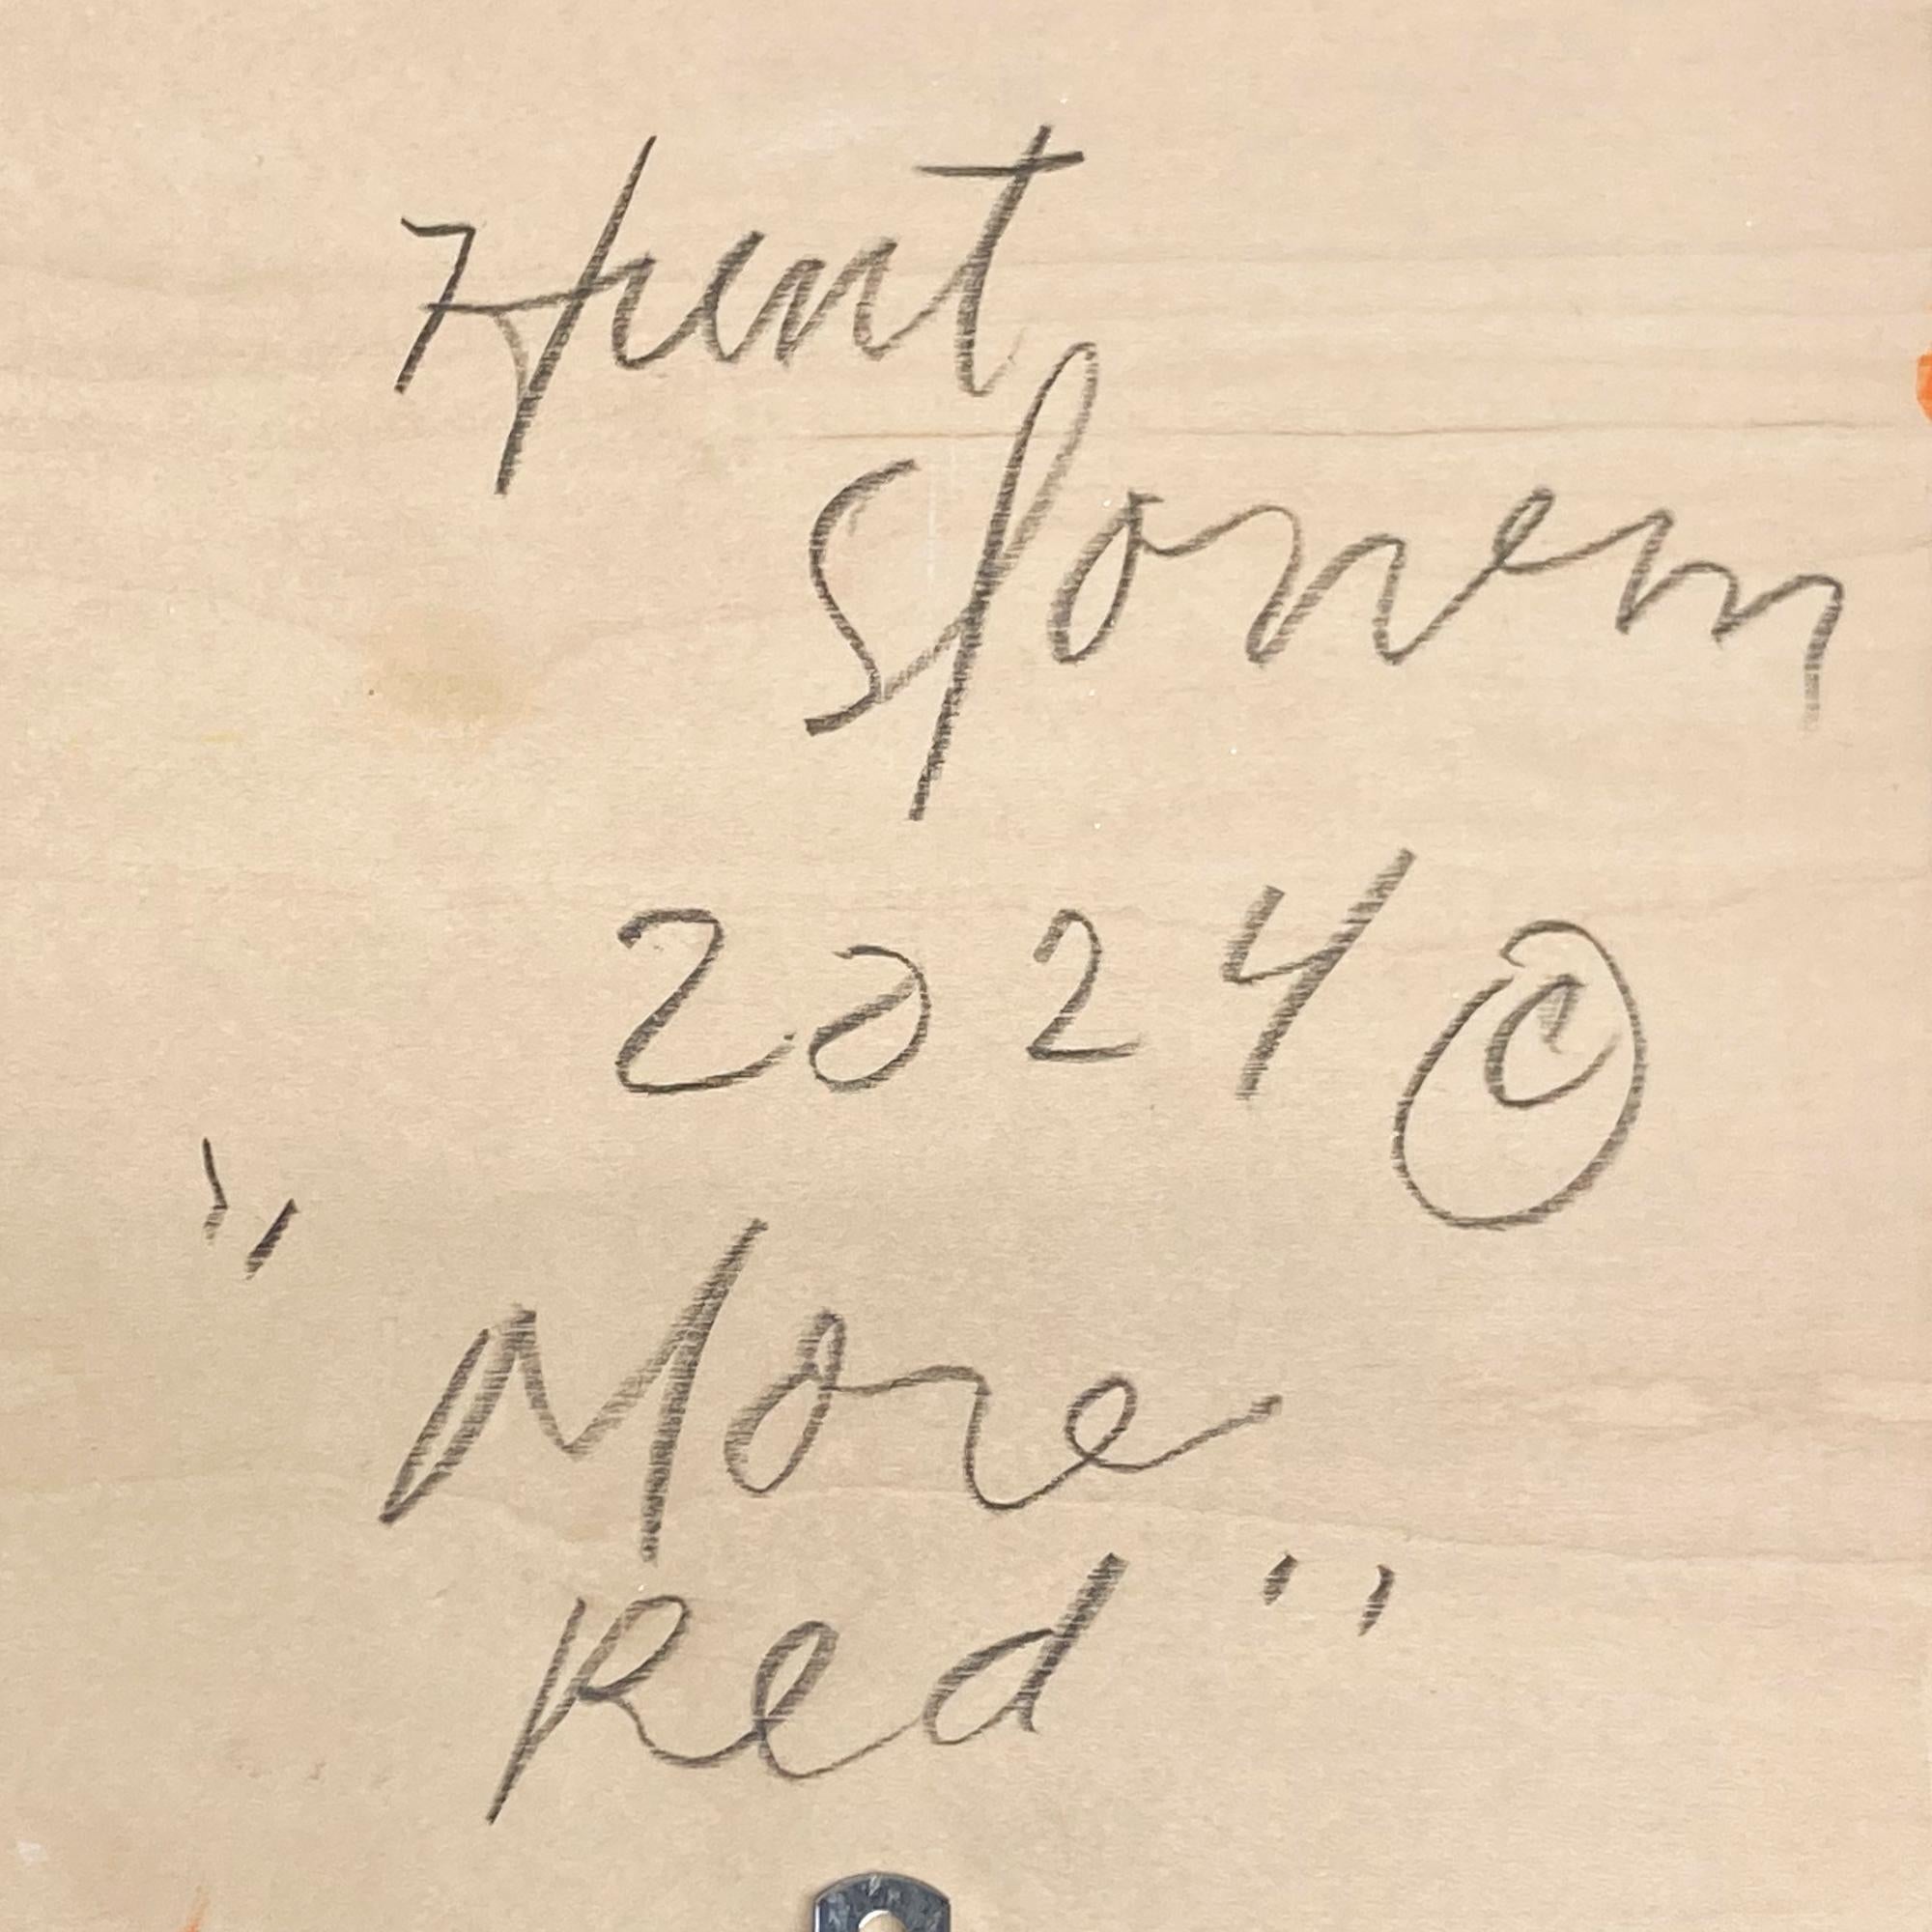 Hunt
Slonem
2024 ©
"More
Red"